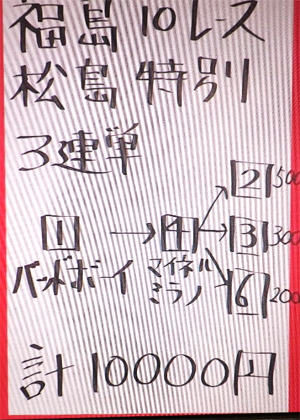 福島 10レース
松島特別
3連単
2 500
1 → 4 → 3 300
バンドボーイ マイネルミラノ 6 200
計 10000円